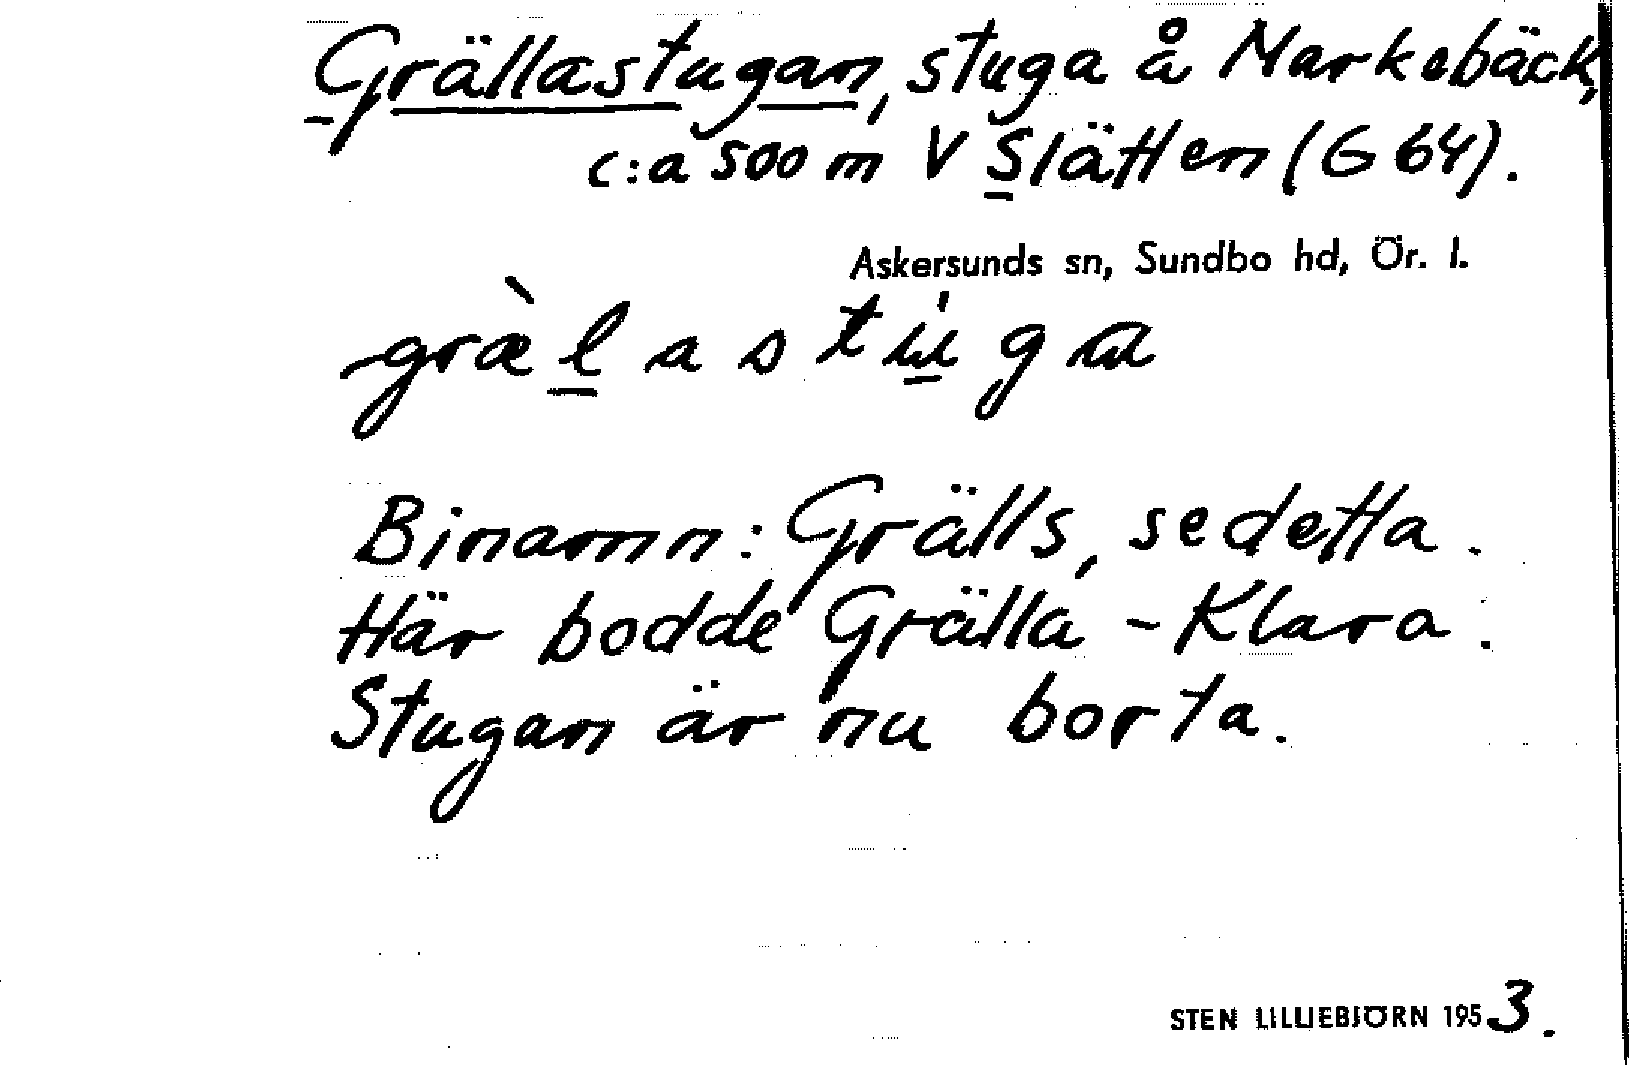 Grällastugan, stuga å Markebäck,
c:a 500 m V Slätten (G 64).
Askersunds sn, Sundbo hd, Ör. l.
græ̀lastu̇ga
Binamn: Grälls, se detta.
Här bodde Grälla-Klara.
Stugan är nu borta.
STEN LILLIEBJÖRN 1953.